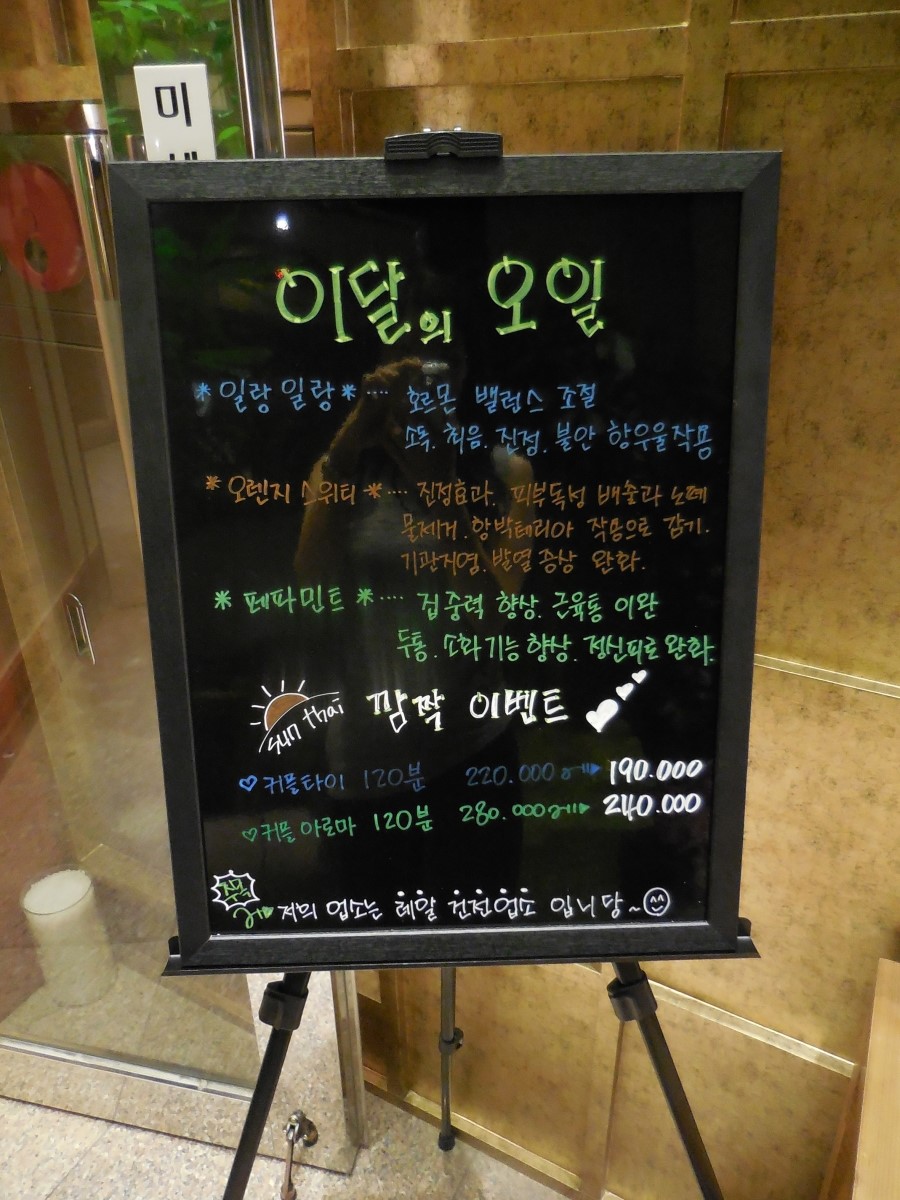 미
이달의 오일
*일랑 일랑* ···· 호르몬 밸런스 조절
소독. 최음. 진정. 불안 항우울작용
*오렌지 스위티* ···· 진정효과. 피부독성 배출과 노폐
물제거. 항박테리아 작용으로 감기.
기관지염. 발열증상 완화.
*페파민트* ···· 집중력 향상. 근육통 이완
두통. 소화기능 향상. 정신피로 완화.
sun thai 깜짝 이벤트
♡커플타이 120분 220.000에▶ 190.000
♡커플 아로마 120분 280.000에▶ 240.000
주목
저희 업소는 레알 건전업소 입니당~